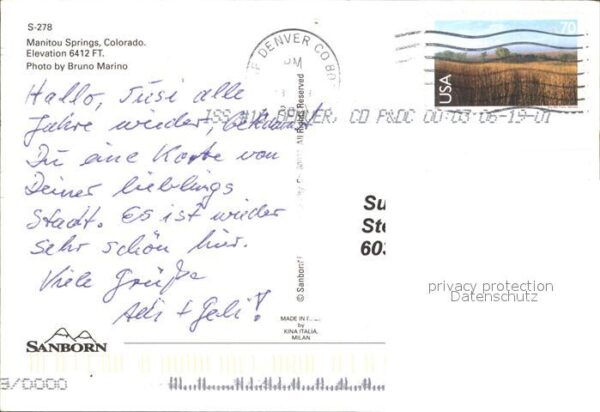 S-278
Manitou Springs, Colorado.
Elevation 6412 FT.
Photo by Bruno Marino
Hallo, Susi alle
Jahre wieder, bekommst
Du eine Karte von
Deiner lieblings
Stadt. Es ist wieder
sehr schön hier.
Viele Grüße
+
SANBORN
DENVER CO 80
PM
DENVER, CO P&DC 00:03 06-19-01
USA
70
All Rights Reserved
© Sanborn
MADE IN
by
KINA ITALIA,
MILAN
Su
Ste
603
privacy protection
Datenschutz
/0000